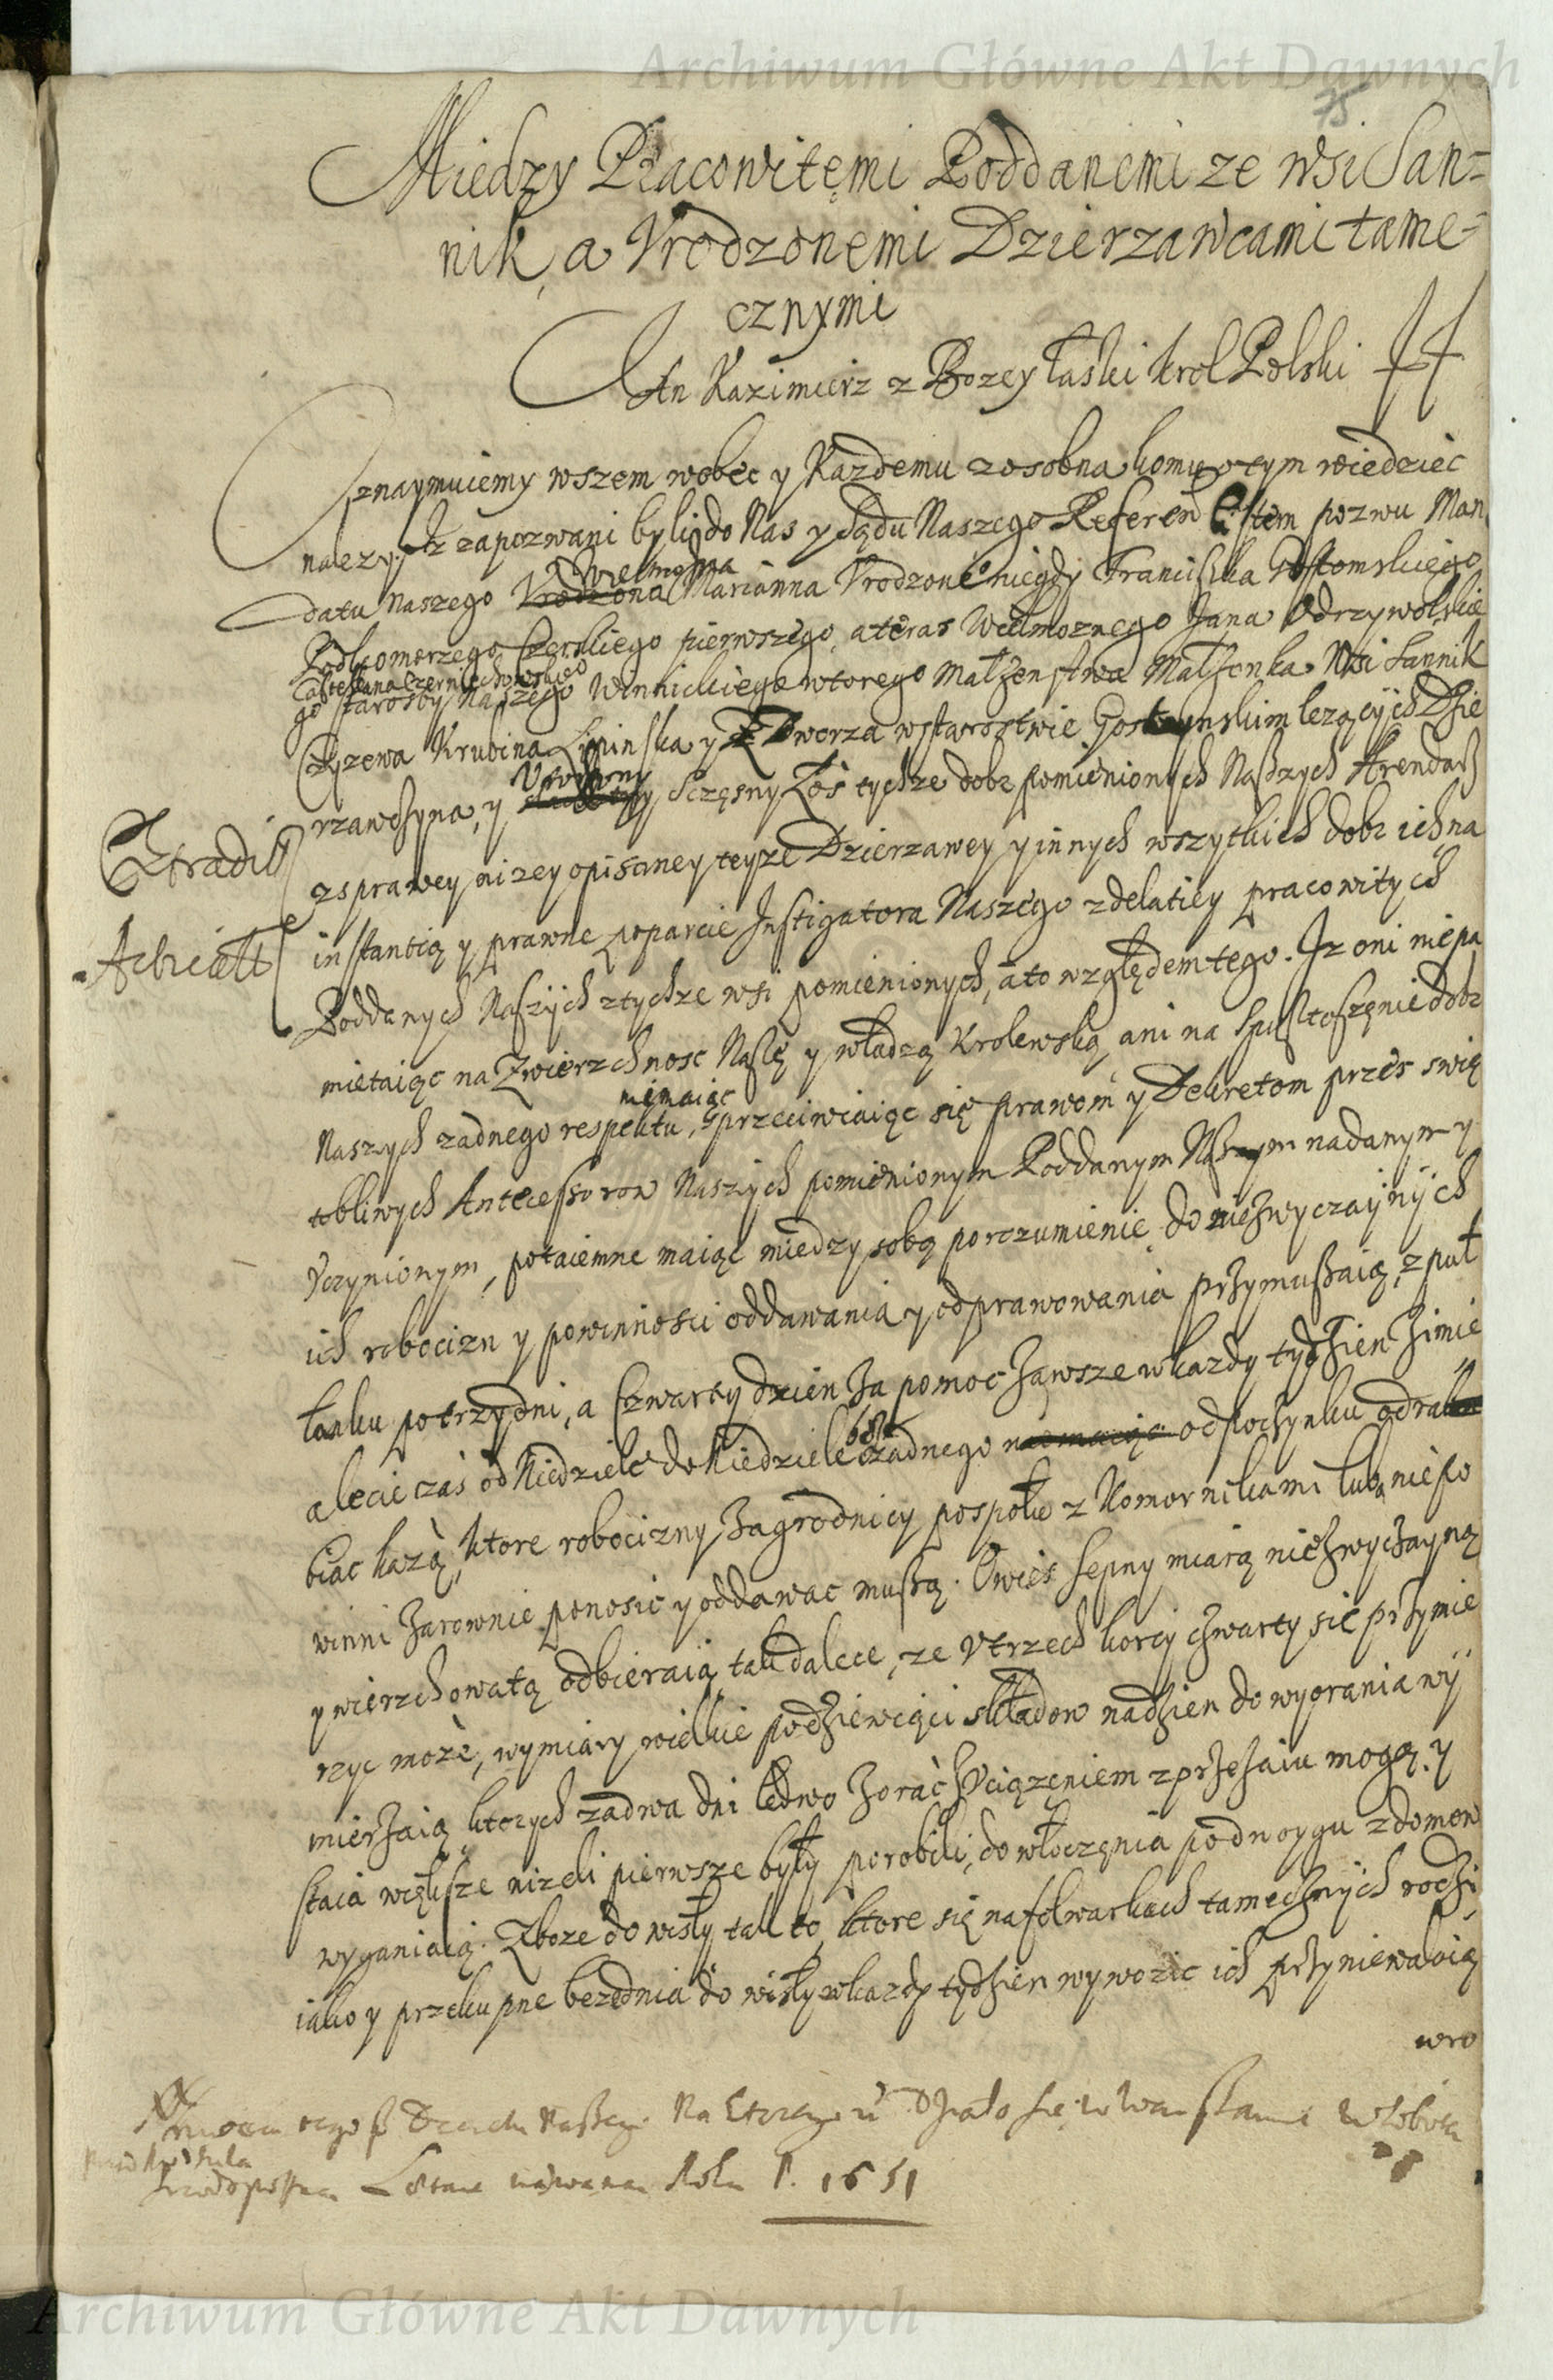 Archiwum Główne Akt Dawnych
75
Miedzy Pracowitęmi Poddanemi ze wsi San=
nik, a Vrodzonemi Dzierzawcami tame=
cznymi
Jan Kazimierz z Bozey łaski krol Polski
Oznaymuiemy wszem wobec y Kazdemu zosobna komu otym wiedziec
nalezy, Iz zapozwani byli do Nas y Sądu Naszego Referen pozwu Man
datu naszego Vrodzona Wielmozna Marianna Vrodzone niegdy Franciszka Gostomskiego
Podkomorzego Czerskiego pierwszego, a teras Wielmoznego Jana Odrzywolskie
Castellana Czerniechowskiego
go Starosty Naszego Winnickiego wtorego Małzenstwa Małzonka Wsi Sannik
Czyzewa Krubina Lipinska y Zdworza wstarostwie Gostynskim lezących Dzie
rzawczyna, y Vrodzony Sczęsny Łos tychze dobr pomienionych Naszych Arendarz
zsprawey nizey opisaney teyze Dzierzawey y innych wszytkich dobr ich na
instantią y prawne poparcie Instigatora Naszego zdelatiey pracowitych
Poddanych Naszych ztychze wsi pomienionych, a to względem tego. Iz oni niepa
mietaiąc na Zwierzchnosc Naszę y władzą Krolewską, ani na Spustoszęnie dobr
Naszych zadnego respektu, niemaiąc sprzeciwiaiąc się prawom y Dekretom przes swię
tobliwych Antecessorow Naszych pomienionym Poddanym Naszym nadanym y
Vczynionym, potaiemne maiąc miedzy sobą porozumienie do niezwyczaynych
ich robocizn y powinnosci oddawania y odprawowania przymuszaią, z puł
łanku potrzy dni, a Czwarty dzien za pomoc zawsze wkazdy tydzien zimie
a lecie zas od Niedziele do Niedziele bez zadnego odpoczynku odra
biac kazą, ktore robocizny zagrodnicy pospołu z Komornikami lubo niepo
winni zarownie ponosic y oddawac muszą. Owies sepny miarą niezwyczayną
y wierzchowatą odbieraią, tak dalece, ze Vtrzech korcy czwarty się przymie
rzyc moze, wymiary wielkie po dziewięci składow nadzien do wyorania wy
mierzaią, ktorych zadwa dni ledwo zorac Vciązęniem zprzezaiu mogą, y
staia większe nizeli pierwsze były porobili, do włoczęnia podwoygu zdomow
wyganiaią. Zboze do wisły tak to, ktore się nafolwarkach tamecznych rodzi,
iako y przekupne bezednia do wisły wkazdy tydzien wywozic ich przyniewalaią
wro
Extradit
tego Naszego Na Ktorego Działo się w Warszawie w Sobotę
Roku P. 1651
Archiwum Główne Akt Dawnych